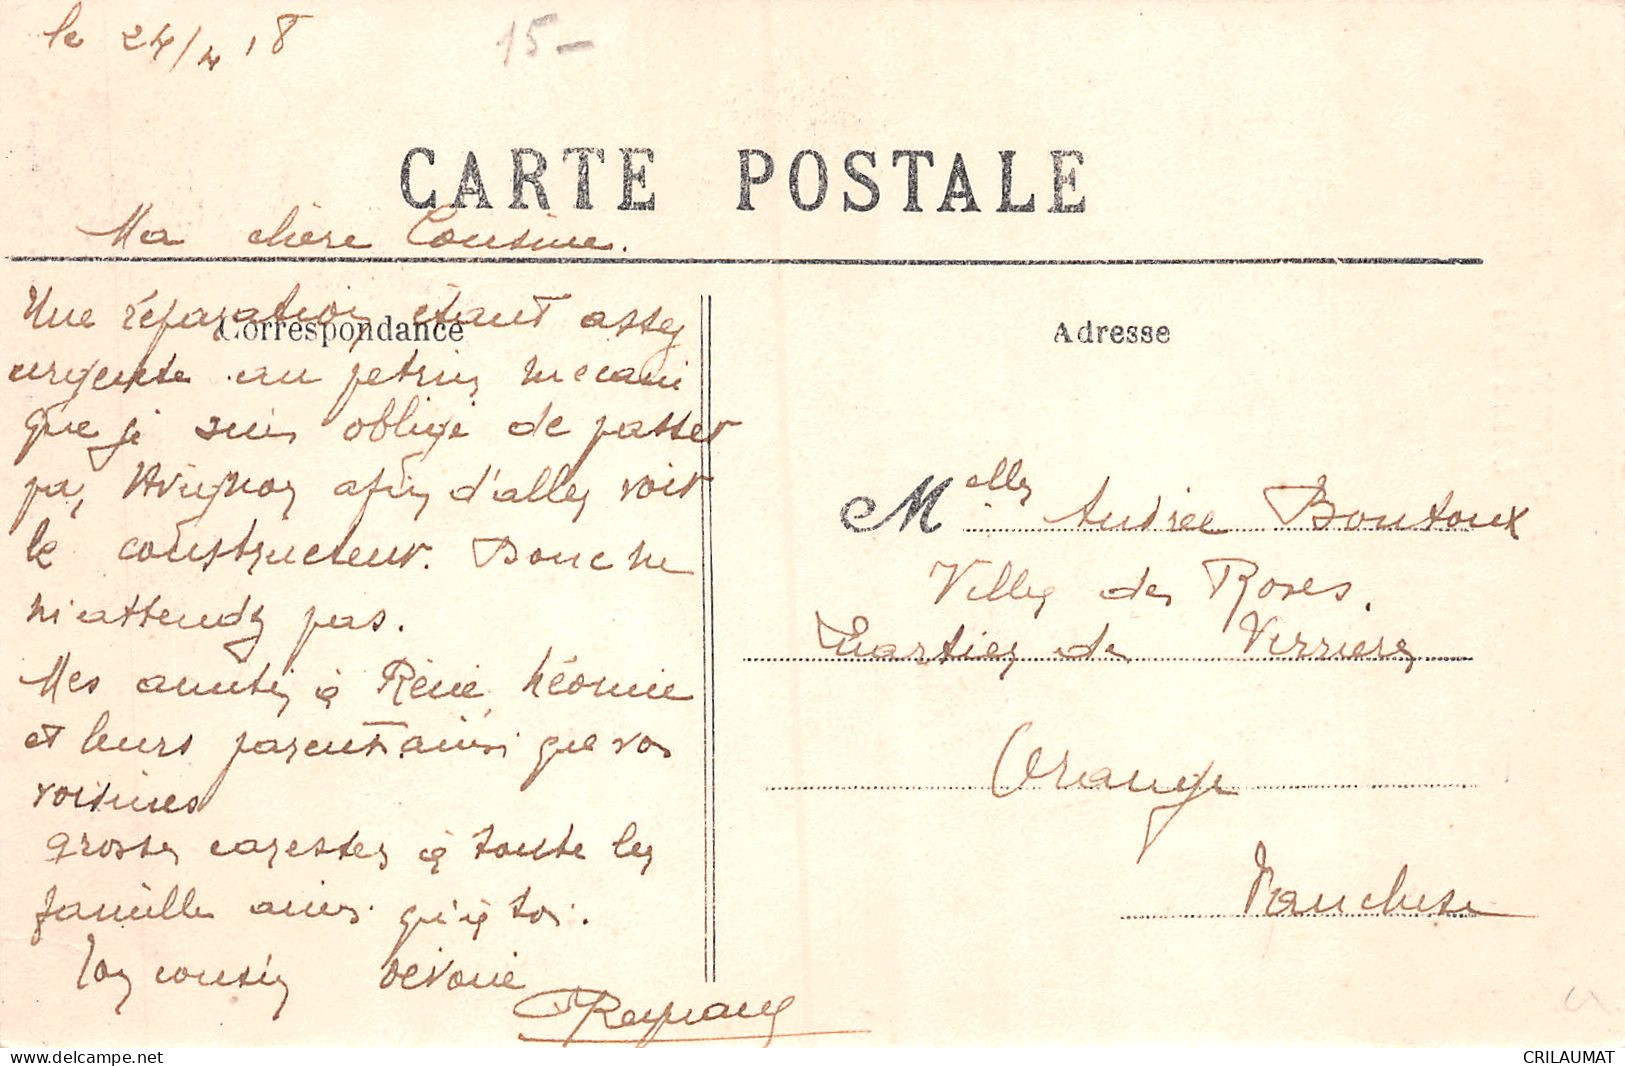 le 24/4 18
15-
CARTE POSTALE
Ma chère Cousine.
Correspondance
Une réparation étant assez
urgente au petrin mecani
que je suis obligé de passer
par Avignon afin d'aller voir
le constructeur. Donc ne
m'attendez pas.
Mes amitiés à Réné, Néomie
et leurs parents ainsi que vos
voisines
grosses caresses à toute la
famille ainsi qu'à toi.
Ton cousin dévoué
Reynaud
Adresse
Melle Andrée Bontoux
Villa des Roses.
Quartier de Verrière
Orange
Vaucluse
CRILAUMAT